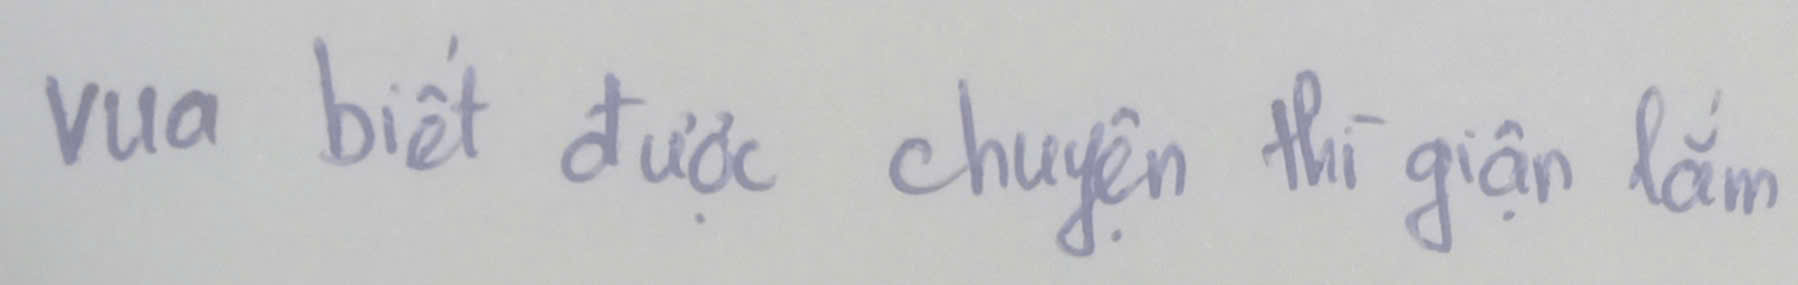 vua biết được chuyện thì giận lắm